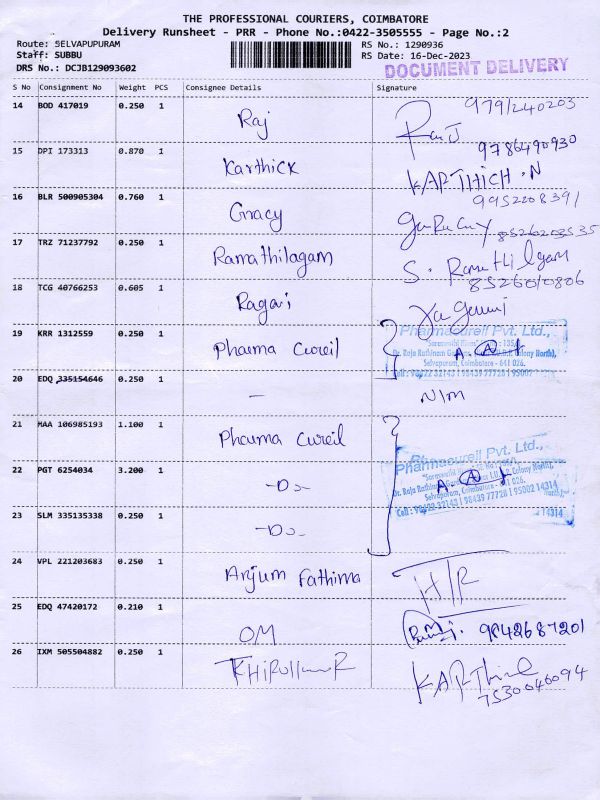 THE PROFESSIONAL COURIERS, COIMBATORE
Delivery Runsheet - PRR - Phone No.:0422-3505555 - Page No.:2
Route: SELVAPUPURAM
RS No.: 1290936
Staff: SUBBU
RS Date: 16-Dec-2023
DRS No.: DCJB129093602
DOCUMENT DELIVERY
S No Consignment No Weight PCS Consignee Details Signature
9791240203
14 BOD 417019 0.250 1 Raj
9786490930
15 DPI 173313 0.870 1 Karthick KARTHICH.N
9952208391
16 BLR 500905304 0.760 1 Gracy
8526203535
17 TRZ 71237792 0.250 1 Ramathilagam S.
8526010806
18 TCG 40766253 0.605 1 Ragavi
19 KRR 1312559 0.250 1 Pharma Cureil
Pharmacureil Pvt. Ltd.,
Selvapuram, Coimbatore - 641 026.
20 EDQ 335154646 0.250 1 — N/M
21 MAA 106985193 1.100 1 Pharma Cureil
Pharmacureil Pvt. Ltd.,
22 PGT 6254034 3.200 1 -Do-
Selvapuram, Coimbatore - 641 026.
Cell : 98422 32143 | 98439 77728 | 95002 14314
23 SLM 335135338 0.250 1 -Do-
24 VPL 221203683 0.250 1 Anjum Fathima H/R
25 EDQ 47420172 0.210 1 OM 9842687201
26 IXM 505504882 0.250 1 KARThick
7530046094